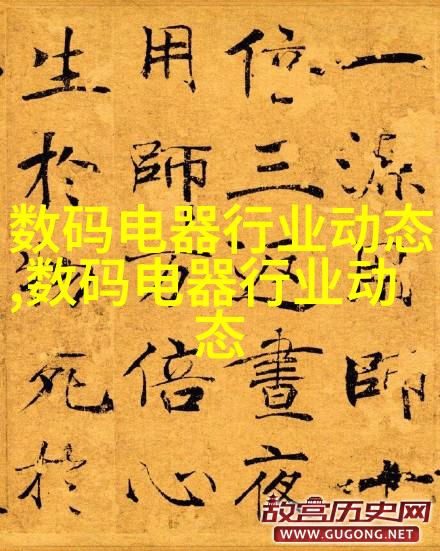 一源用師十
倍三返晝夜
用師万倍心
生於物死於
数码电器行业动态
,数码电器行业动
态
故宫历史网
WWW.GUGONG.NET